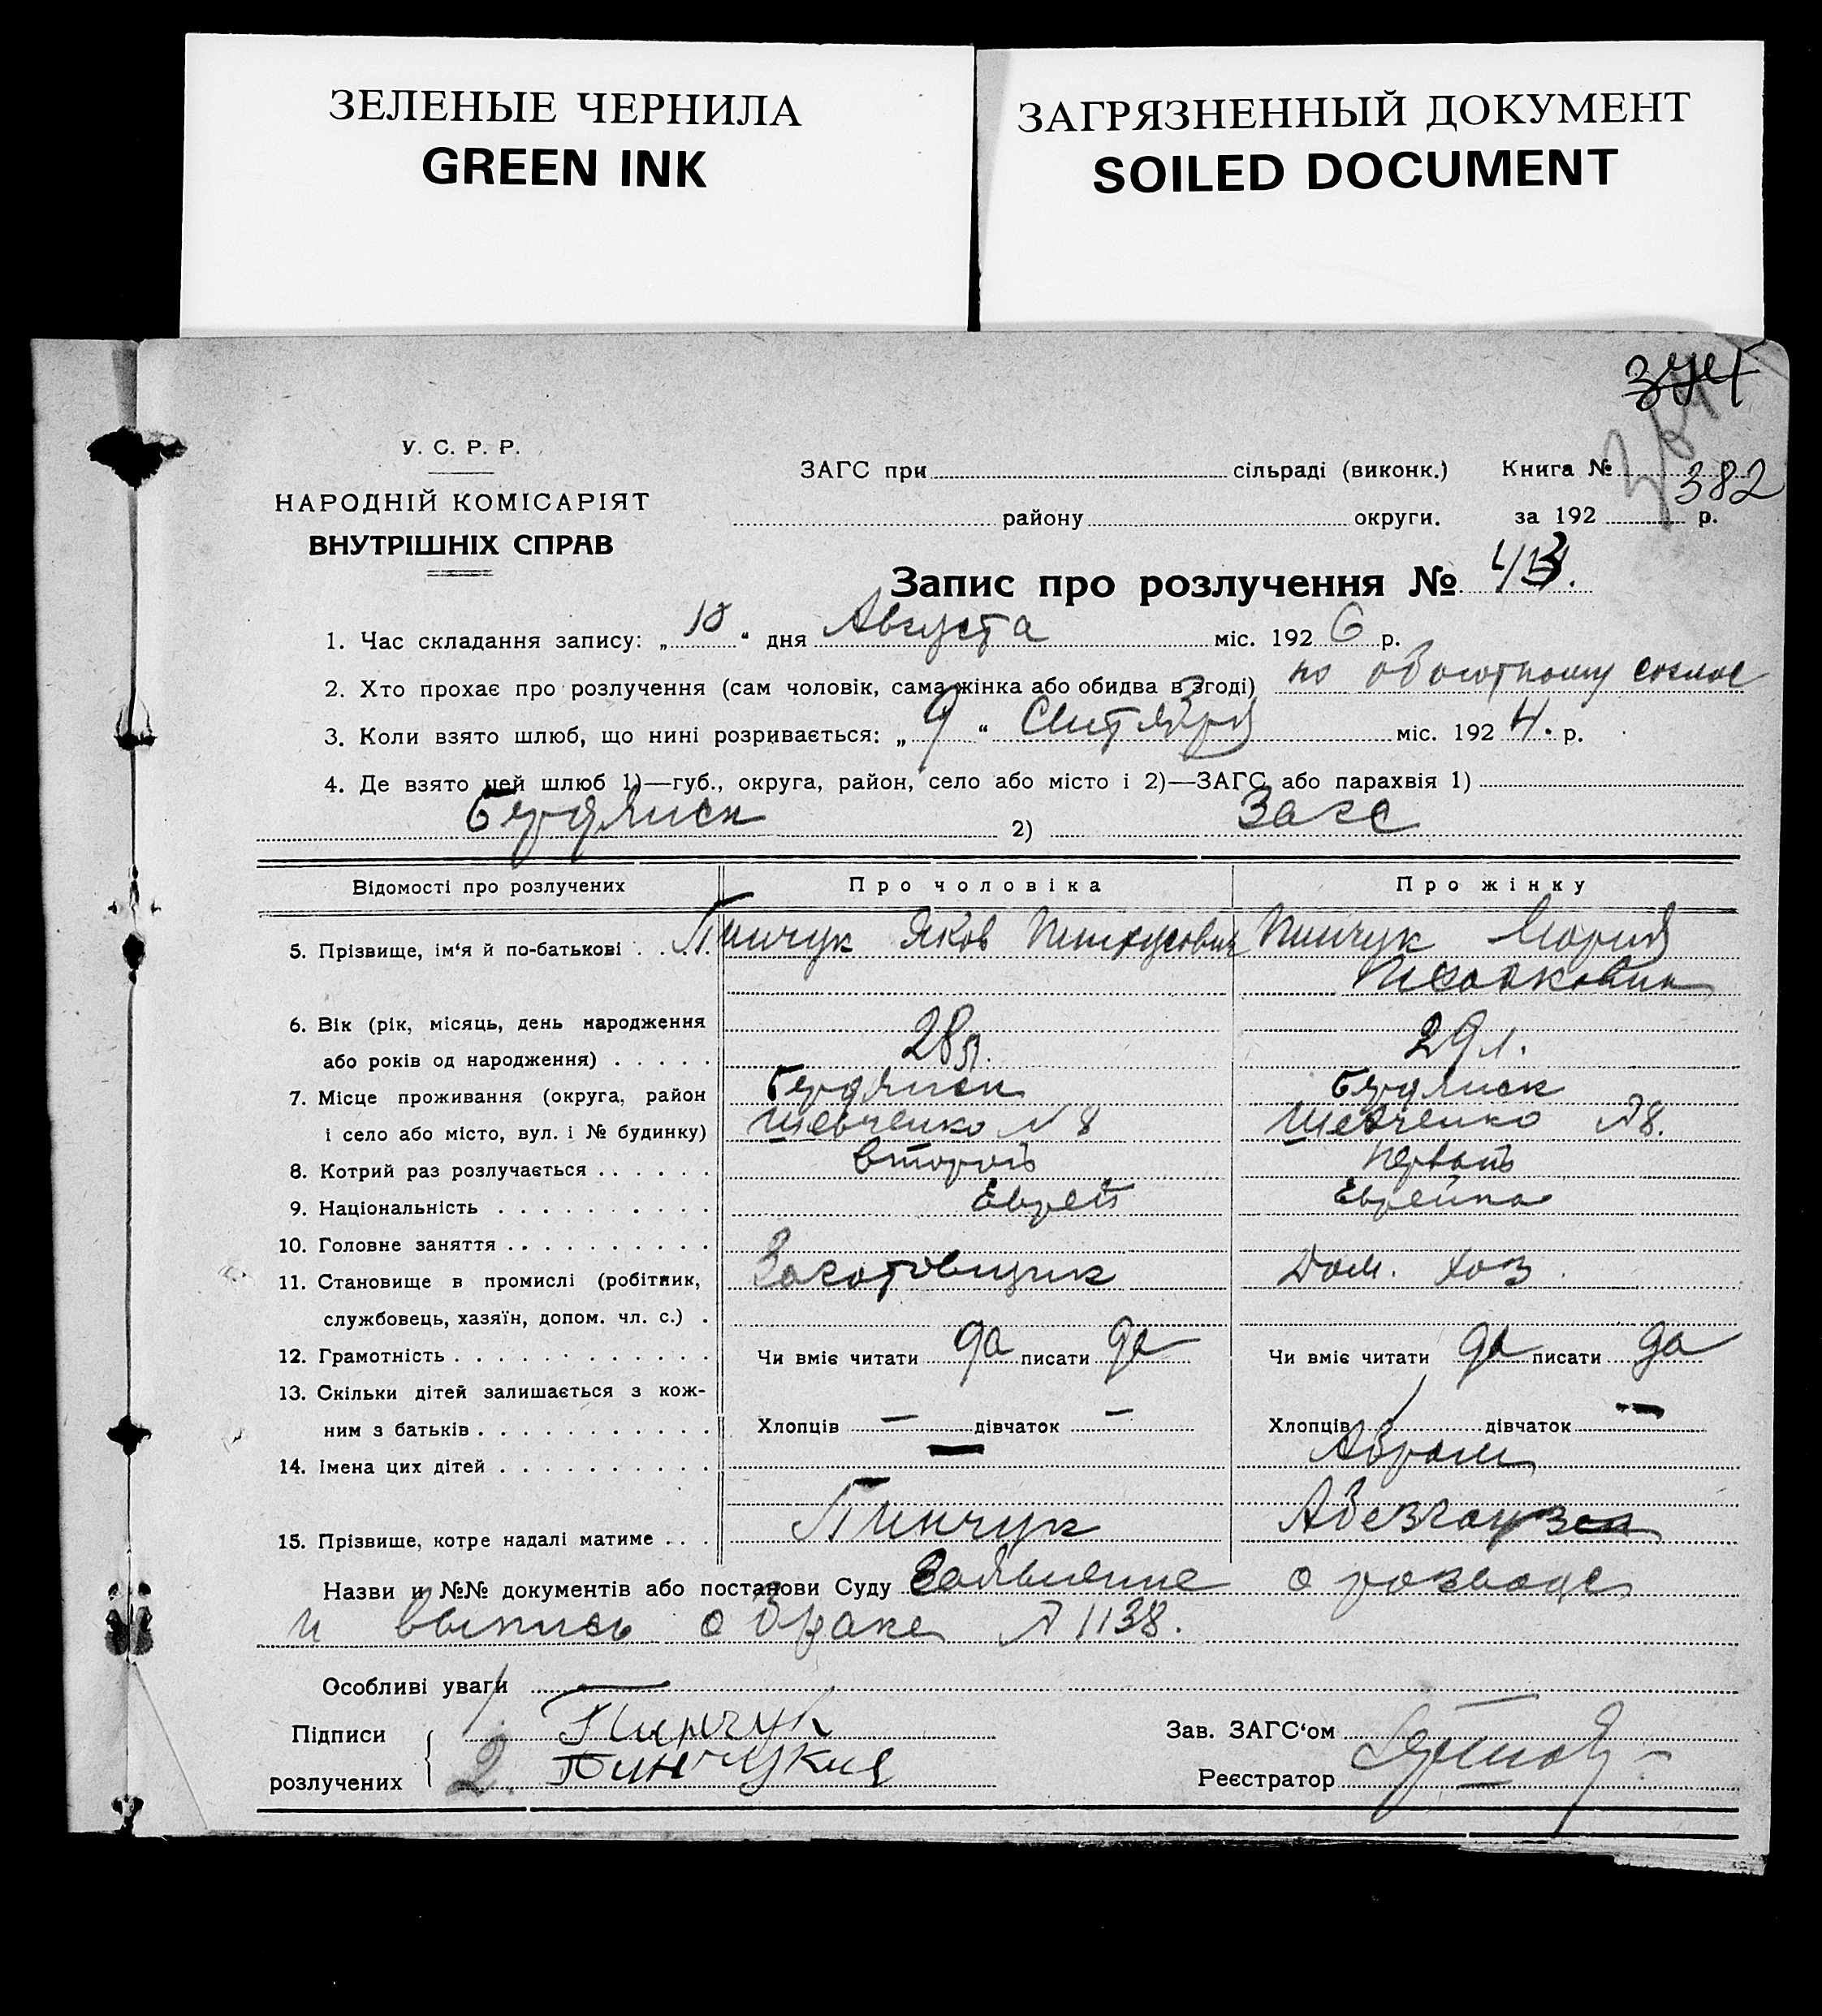 ЗЕЛЕНЫЕ ЧЕРНИЛА
GREEN INK
ЗАГРЯЗНЕННЫЙ ДОКУМЕНТ
SOILED DOCUMENT
382
У. С. Р. Р.
НАРОДНІЙ КОМІСАРІЯТ
ВНУТРІШНІХ СПРАВ
ЗАГС при сільраді (виконк.) Книга №
району округи. за 192 р.
Запис про розлучення №
1. Час складання запису: „10“ дня Августа міс. 1926 р.
2. Хто прохає про розлучення (сам чоловік, сама жінка або обидва в згоді) по обоютному соглас
3. Коли взято шлюб, що нині розривається: „9“ Снтября міс. 1924. р.
4. Де взято цей шлюб 1)—губ., округа, район, село або місто і 2)—ЗАГС або парахвія 1)
Бердянск 2) Загс
Відомості про розлучених Про чоловіка Про жінку
5. Прізвище, ім‘я й по-батькові Пинчук Яков Пинхусович Пинчук Мария
Исааковна
6. Вік (рік, місяць, день народження
або років од народження) 28 л. 29 л.
7. Місце проживання (округа, район Бердянск Бердянск
і село або місто, вул. і № будинку) Шевченко № 8 Шевченко № 8.
8. Котрий раз розлучається второй первый
9. Національність Еврей Еврейка
10. Головне заняття
11. Становище в промислі (робітник, Заготовщик Дом. хоз.
службовець, хазяїн, допом. чл. с.)
12. Грамотність Чи вміє читати да писати да Чи вміє читати да писати да
13. Скільки дітей залишається з кож-
ним з батьків Хлопців — дівчаток — Хлопців 1 дівчаток —
14. Імена цих дітей — Абрам
15. Прізвище, котре надалі матиме Пинчук Абезгауз
Назви и №№ документів або постанови Суду Заявление о разводе
и выпись о браке № 1138.
Особливі уваги
Підписи 1. Пинчук Зав. ЗАГС‘ом
розлучених 2. Реєстратор